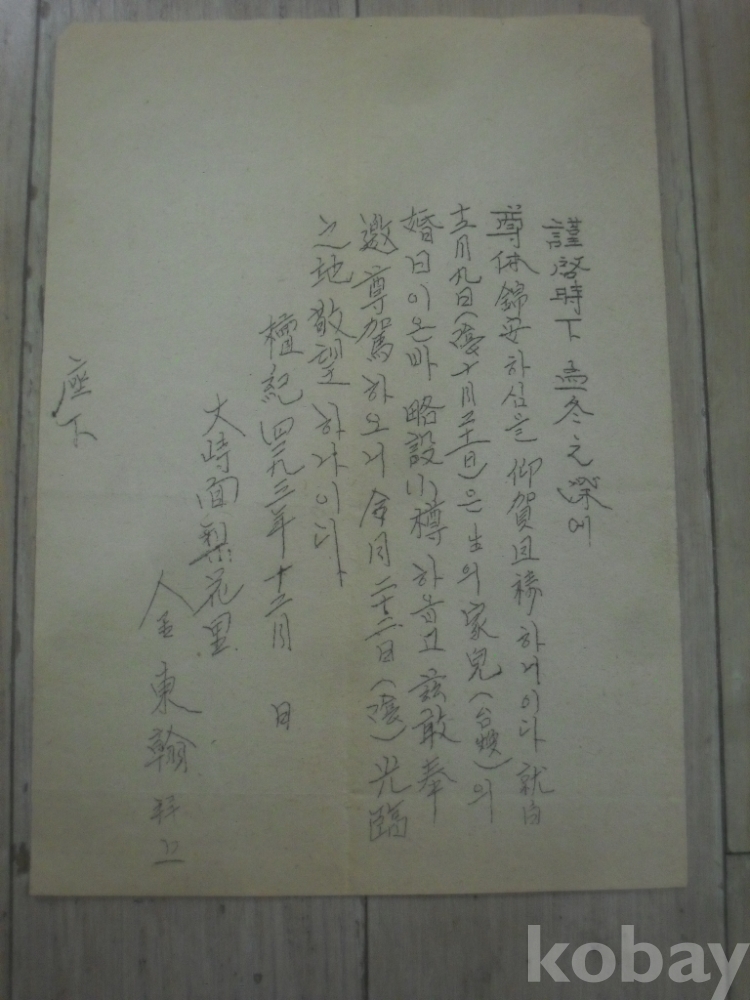 謹啓時下孟冬之深에
尊体錦安하심을 仰賀且祷하나이다 就白
十二月九日(陰十月二十一日)은 生의 家兒(台燮)의
婚日이온바 略設小樽하옵고 玆敢奉
邀尊駕하오니 今月二十二日(陰)光臨
之地敬望하나이다
檀紀四二九三年十二月 日
大峙面梨花里
金東翰 拜上
座下
kobay